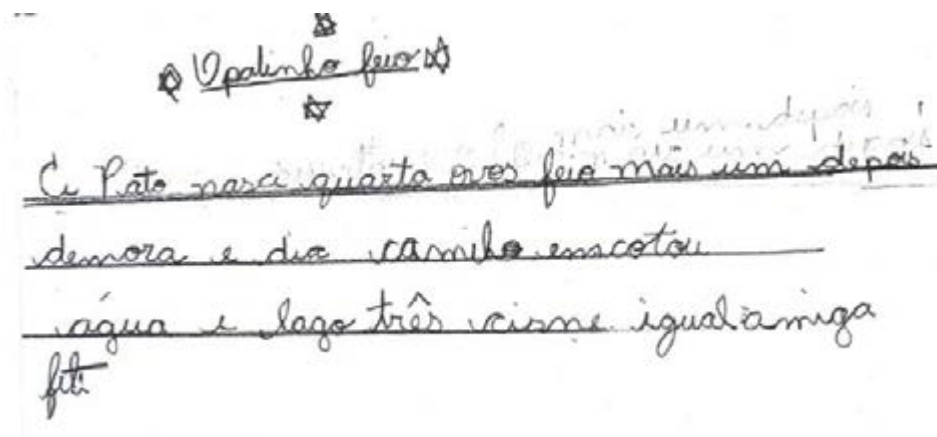 O patinho feio
Pato nasce quarta ovos feio mais um depois
demora e dia caminho enscotou
água e lago três cisne igual amiga